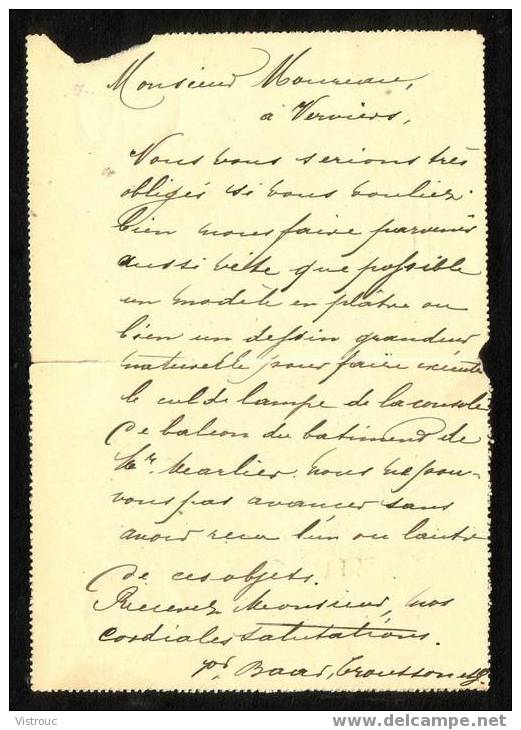 Monsieur Moureau,
à Verviers,
Nous vous serions très
obligés si vous vouliez
bien nous faire parvenir
aussi vite que possible
un modèle en plâtre ou
bien un dessin grandeur
naturelle pour faire exécuter
le cul de lampe de la console
de balcon du batiment de
Mr. Marlier. nous ne pou-
vons pas avancer sans
avoir recu l'un ou l'autre
de ces objets.
Recevez Monsieur, nos
cordiales salutations.
pr Baar,
Vistrouc
www.delcampe.net